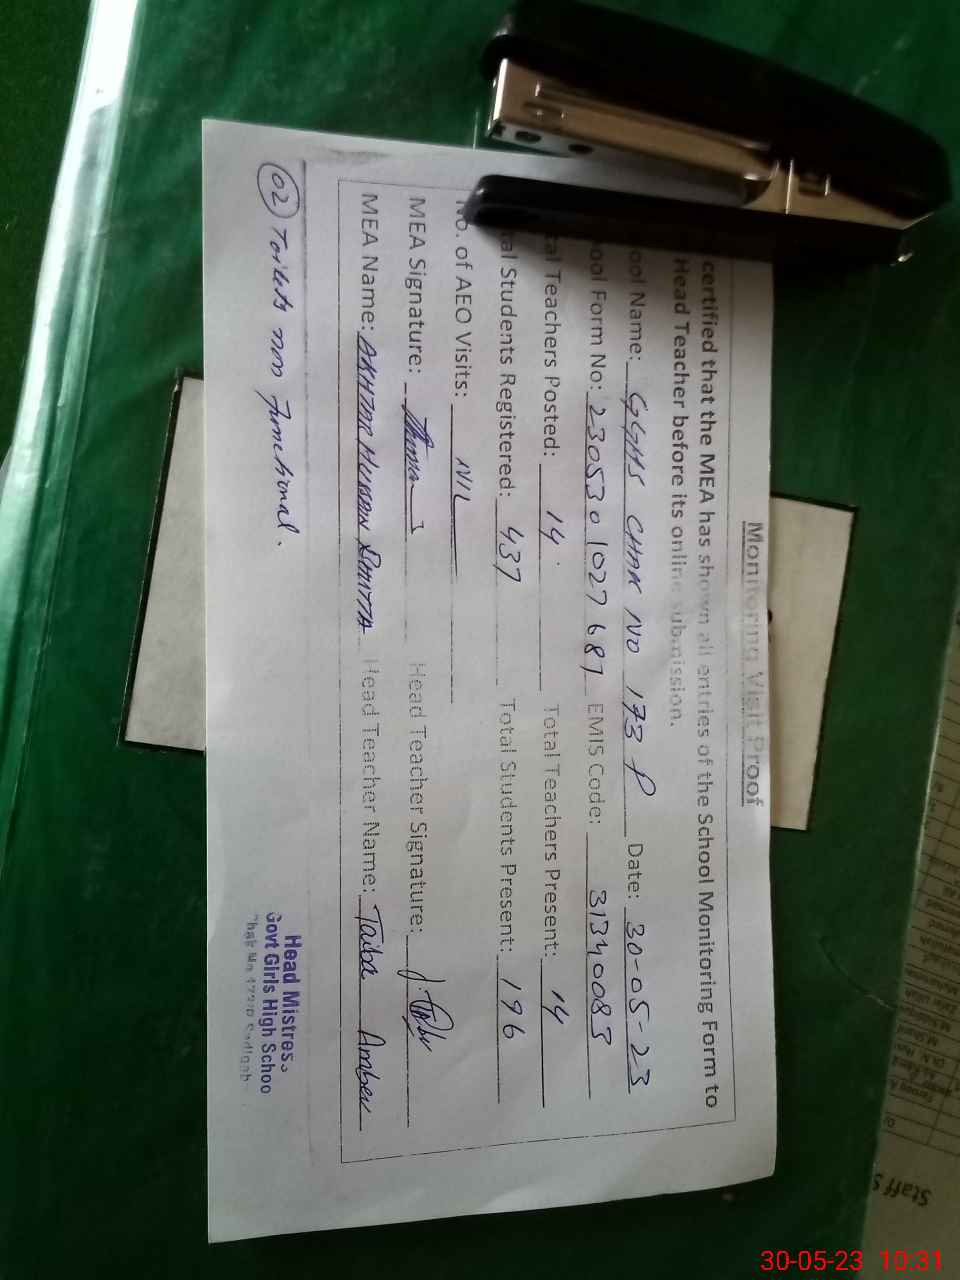 Monitoring Visit Proof
certified that the MEA has shown all entries of the School Monitoring Form to
Head Teacher before its online submission.
ool Name: GGHS CHAK NO 173 P Date: 30-05-23
ool Form No: 230530 1027 687 EMIS Code: 31340083
tal Teachers Posted: 14 Total Teachers Present: 14
tal Students Registered: 437 Total Students Present: 196
No. of AEO Visits: NIL
MEA Signature: Head Teacher Signature:
MEA Name: AKHTAR HUSSAIN BHUTTA Head Teacher Name: Taiba Amber
02 Toilets non functional.
Head Mistres.
Govt Girls High Schoo
Staff S
30-05-23 10:31